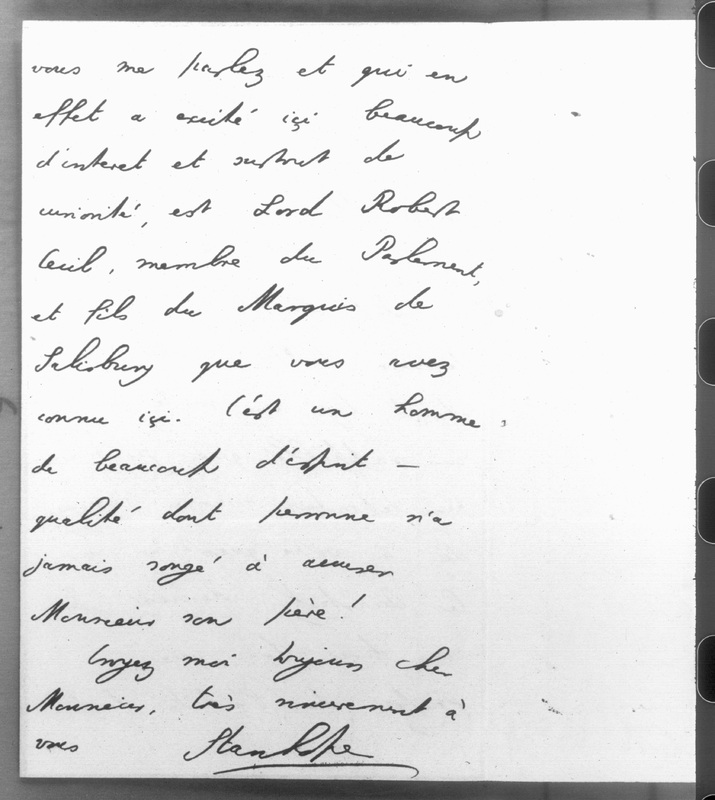 vous me parlez et qui en
effet a excité içi beaucoup
d'interet et surtout de
curiosité, est Lord Robert
Cecil, membre du Parlement,
et fils du Marquis de
Salisbury que vous avez
connu içi. C'est un homme
de beaucoup d'ésprit —
qualité dont personne n'a
jamais songé à accuser
Monsieur son père!
Croyez moi toujours cher
Monsieur, très sincerement à
vous Stanhope